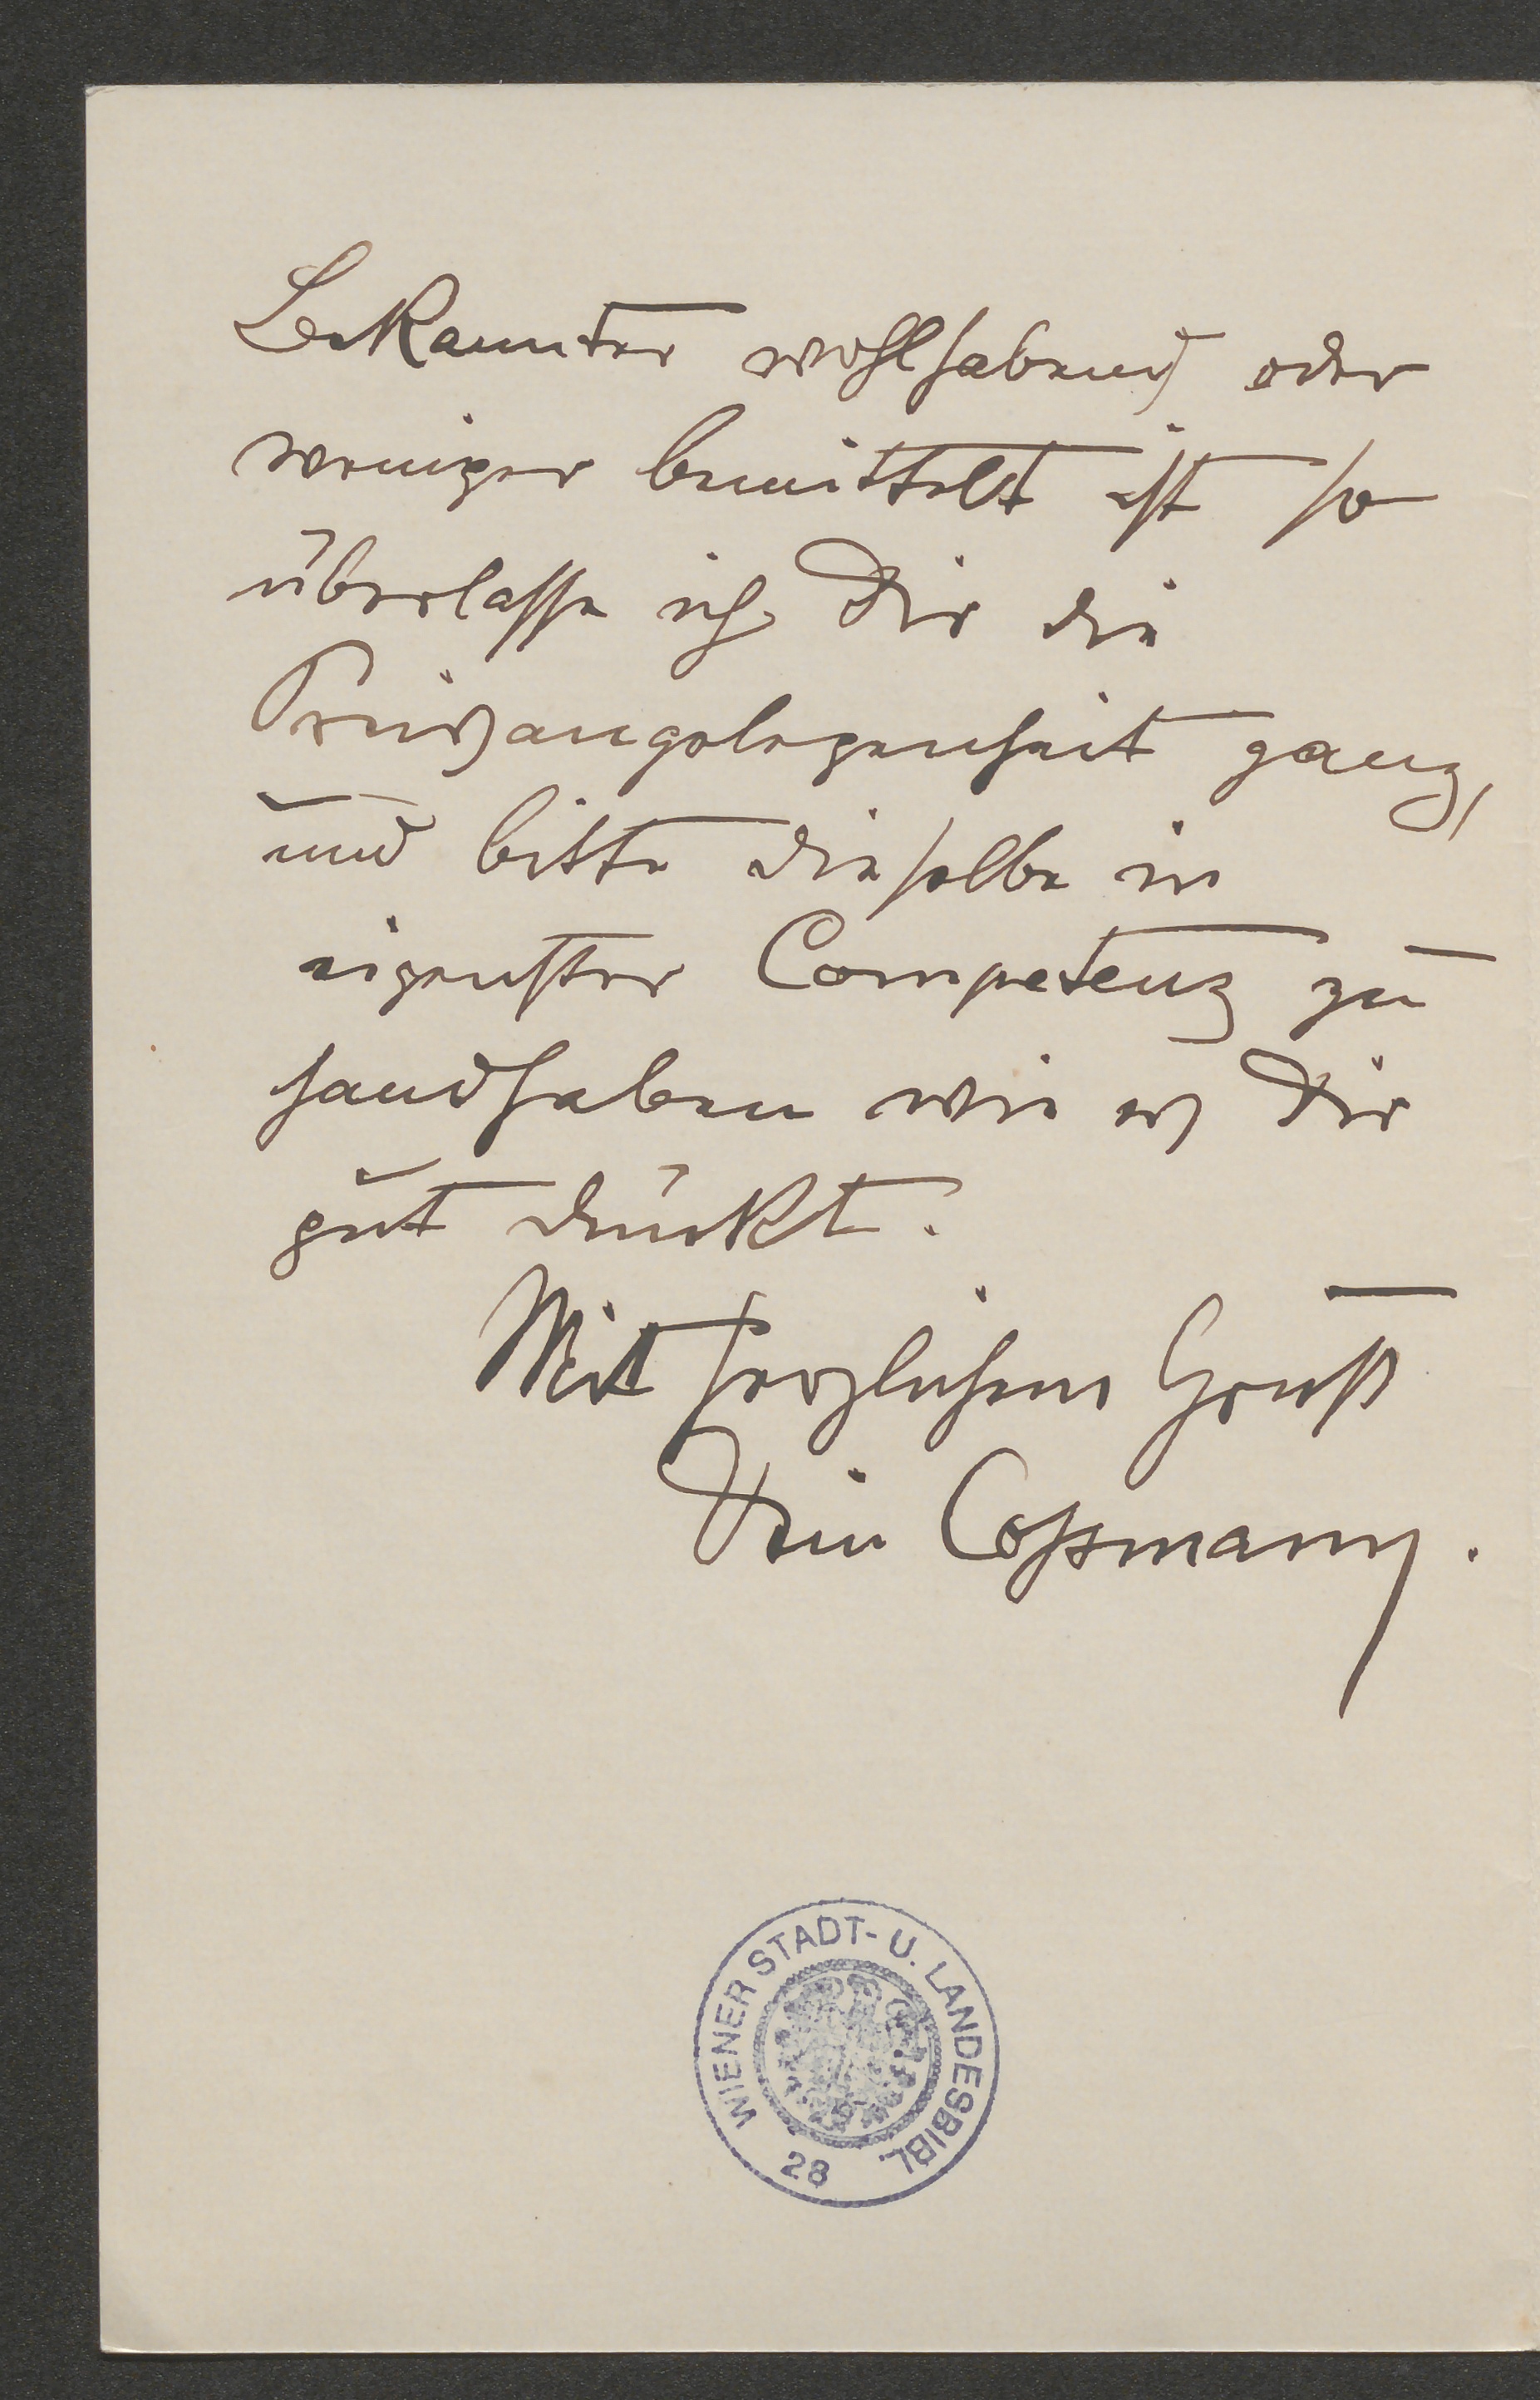 Bekannter wohlhabend oder
weniger bemittelt ist so
überlasse ich Dir die
Preisangelegenheit ganz,
und bitte dieselbe in
eigenster Competenz zu
handhaben wie es Dir
gut dünkt.
Mit herzlichem Gruß
Dein Cossmann.
WIENER STADT- U. LANDESBIBL.
28